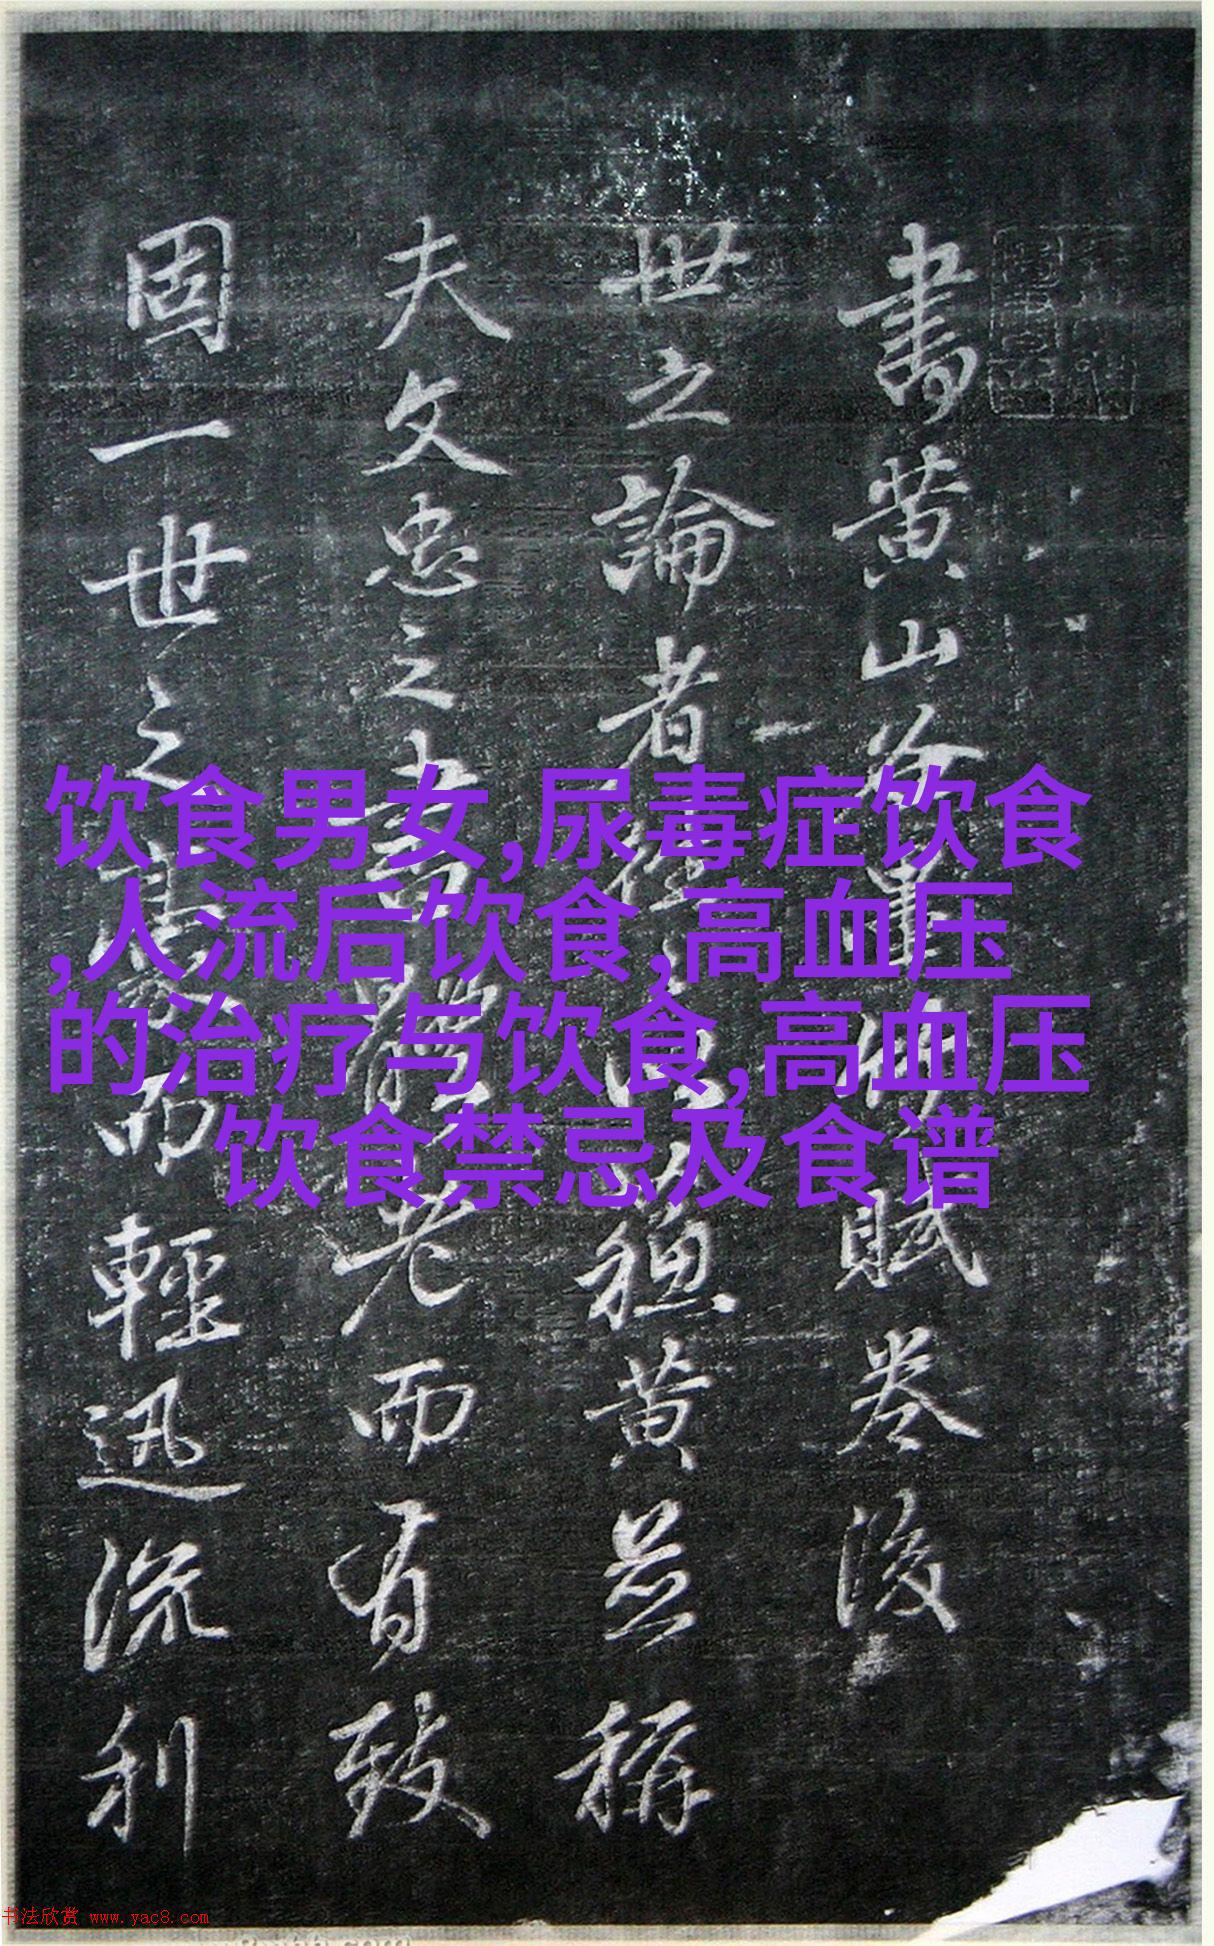 書黄山谷賦卷後
世之論者往往以蘇黄並稱
夫文忠之書體老而有致
固一世之而輕迅流利
饮食男女,尿毒症饮食
,人流后饮食,高血压
的治疗与饮食,高血压
饮食禁忌及食谱
书法欣赏 www.yac8.com